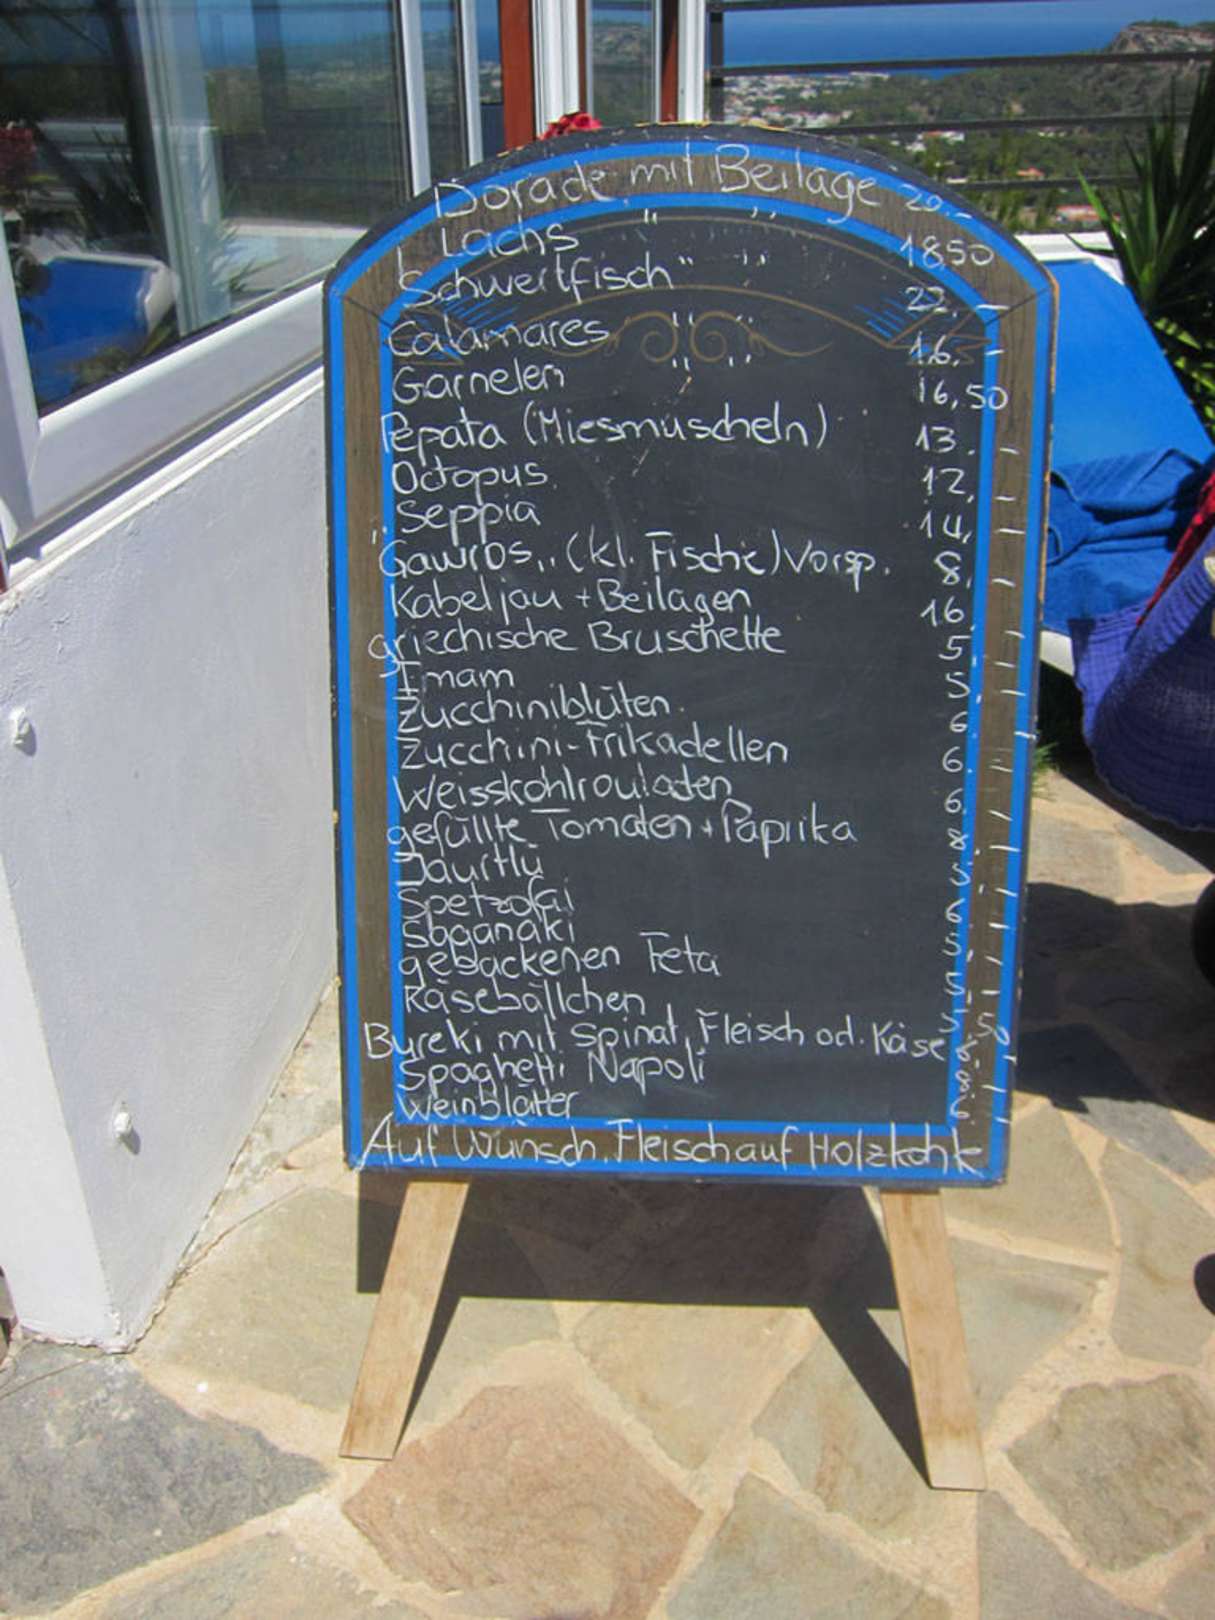 Dorade mit Beilage 20.-
Lachs " " 18,50
Schwertfisch " " 22,-
Calamares " " 16,-
Garnelen " " 16,50
Pepata (Miesmuscheln) 13.-
Octopus 12,-
Seppia 14,-
Gawros,, (kl. Fische) Vorsp. 8,-
Kabeljau + Beilagen 16,-
griechische Bruschette 5,-
Imam 5,-
Zucchiniblüten 6,-
Zucchini-Frikadellen 6.-
Weisskohlrouladen 6.-
gefüllte Tomaten + Paprika 8,-
Jaurtlü 5,-
Spetzofai 6,-
Saganaki 5,-
gebackenen Feta 5,-
Käsebällchen 5,50
Byreki mit Spinat, Fleisch od. Käse 6.-
Spaghetti Napoli 8.-
Weinblätter 6.-
Auf Wunsch, Fleisch auf Holzkohle